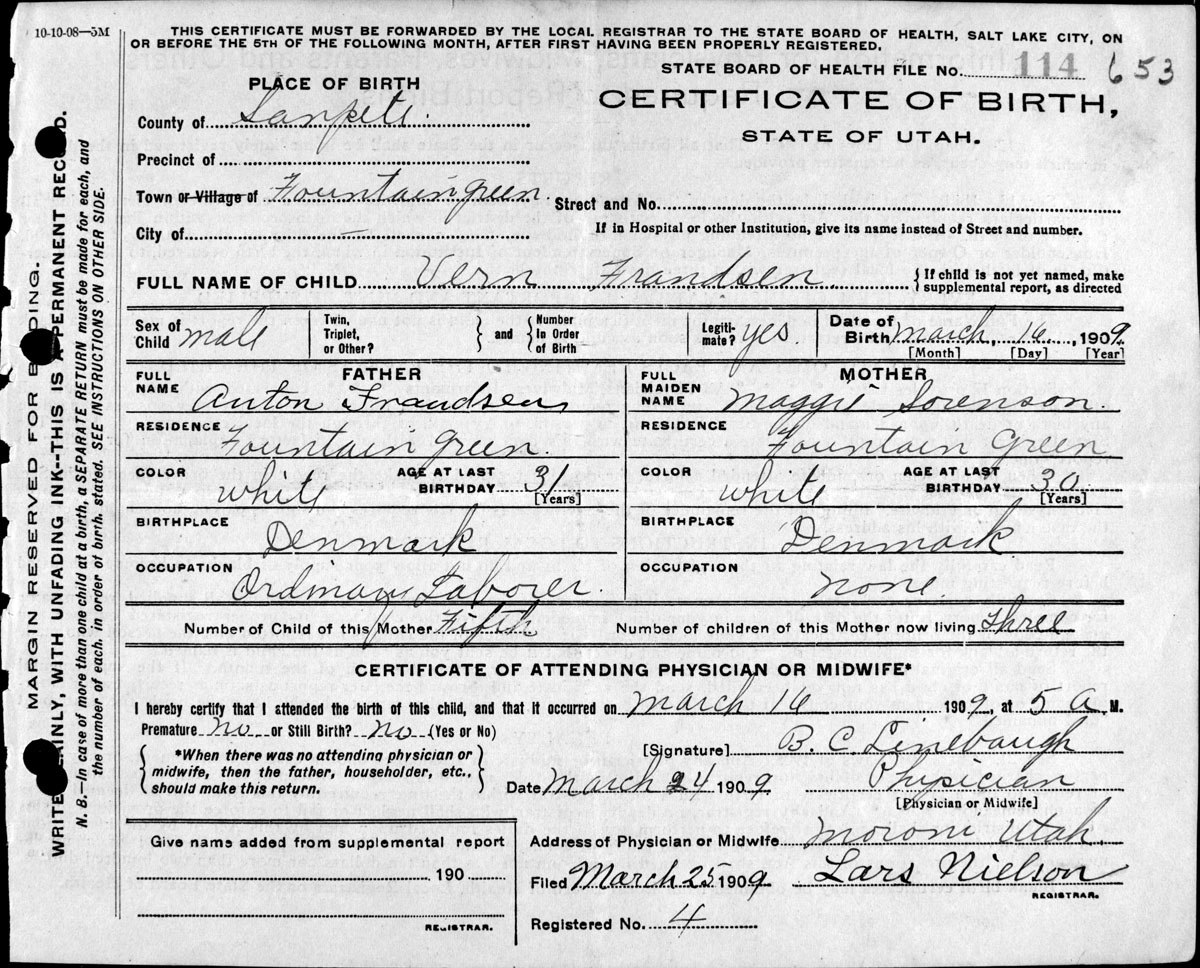 10-10-08—5M
THIS CERTIFICATE MUST BE FORWARDED BY THE LOCAL REGISTRAR TO THE STATE BOARD OF HEALTH, SALT LAKE CITY, ON
OR BEFORE THE 5TH OF THE FOLLOWING MONTH, AFTER FIRST HAVING BEEN PROPERLY REGISTERED.
STATE BOARD OF HEALTH FILE No. 114 653
PLACE OF BIRTH
CERTIFICATE OF BIRTH,
STATE OF UTAH.
County of Sanpete.
Precinct of
Town or Village of Fountaingreen.
Street and No.
City of —
If in Hospital or other Institution, give its name instead of Street and number.
FULL NAME OF CHILD Vern Frandsen.
{ If child is not yet named, make
supplemental report, as directed
Sex of Child male
Twin, Triplet, or Other? } and { Number In Order of Birth
Legitimate? yes.
Date of Birth March, 16, 1909.
[Month] [Day] [Year]
FATHER
FULL NAME Anton Frandsen
RESIDENCE Fountain green.
COLOR white AGE AT LAST BIRTHDAY 31 [Years]
BIRTHPLACE Denmark
OCCUPATION Ordinary Laborer.
MOTHER
FULL MAIDEN NAME Maggie Sorenson.
RESIDENCE Fountain Green
COLOR white AGE AT LAST BIRTHDAY 30 [Years]
BIRTHPLACE Denmark.
OCCUPATION none.
Number of Child of this Mother Fifth
Number of children of this Mother now living three
CERTIFICATE OF ATTENDING PHYSICIAN OR MIDWIFE*
I hereby certify that I attended the birth of this child, and that it occurred on March 16 1909, at 5 A M.
Premature? no or Still Birth? no (Yes or No)
{ *When there was no attending physician or
midwife, then the father, householder, etc.,
should make this return. }
[Signature] B. C. Linebaugh
Date March 24 1909 Physician
[Physician or Midwife]
Give name added from supplemental report
190
REGISTRAR.
Address of Physician or Midwife Moroni Utah.
Filed March 25 1909 Lars Nielson
REGISTRAR.
Registered No. 4
MARGIN RESERVED FOR BINDING.
WRITE PLAINLY, WITH UNFADING INK--THIS IS A PERMANENT RECORD.
N. B.—In case of more than one child at a birth, a SEPARATE RETURN must be made for each, and
the number of each, in order of birth, stated. SEE INSTRUCTIONS ON OTHER SIDE.